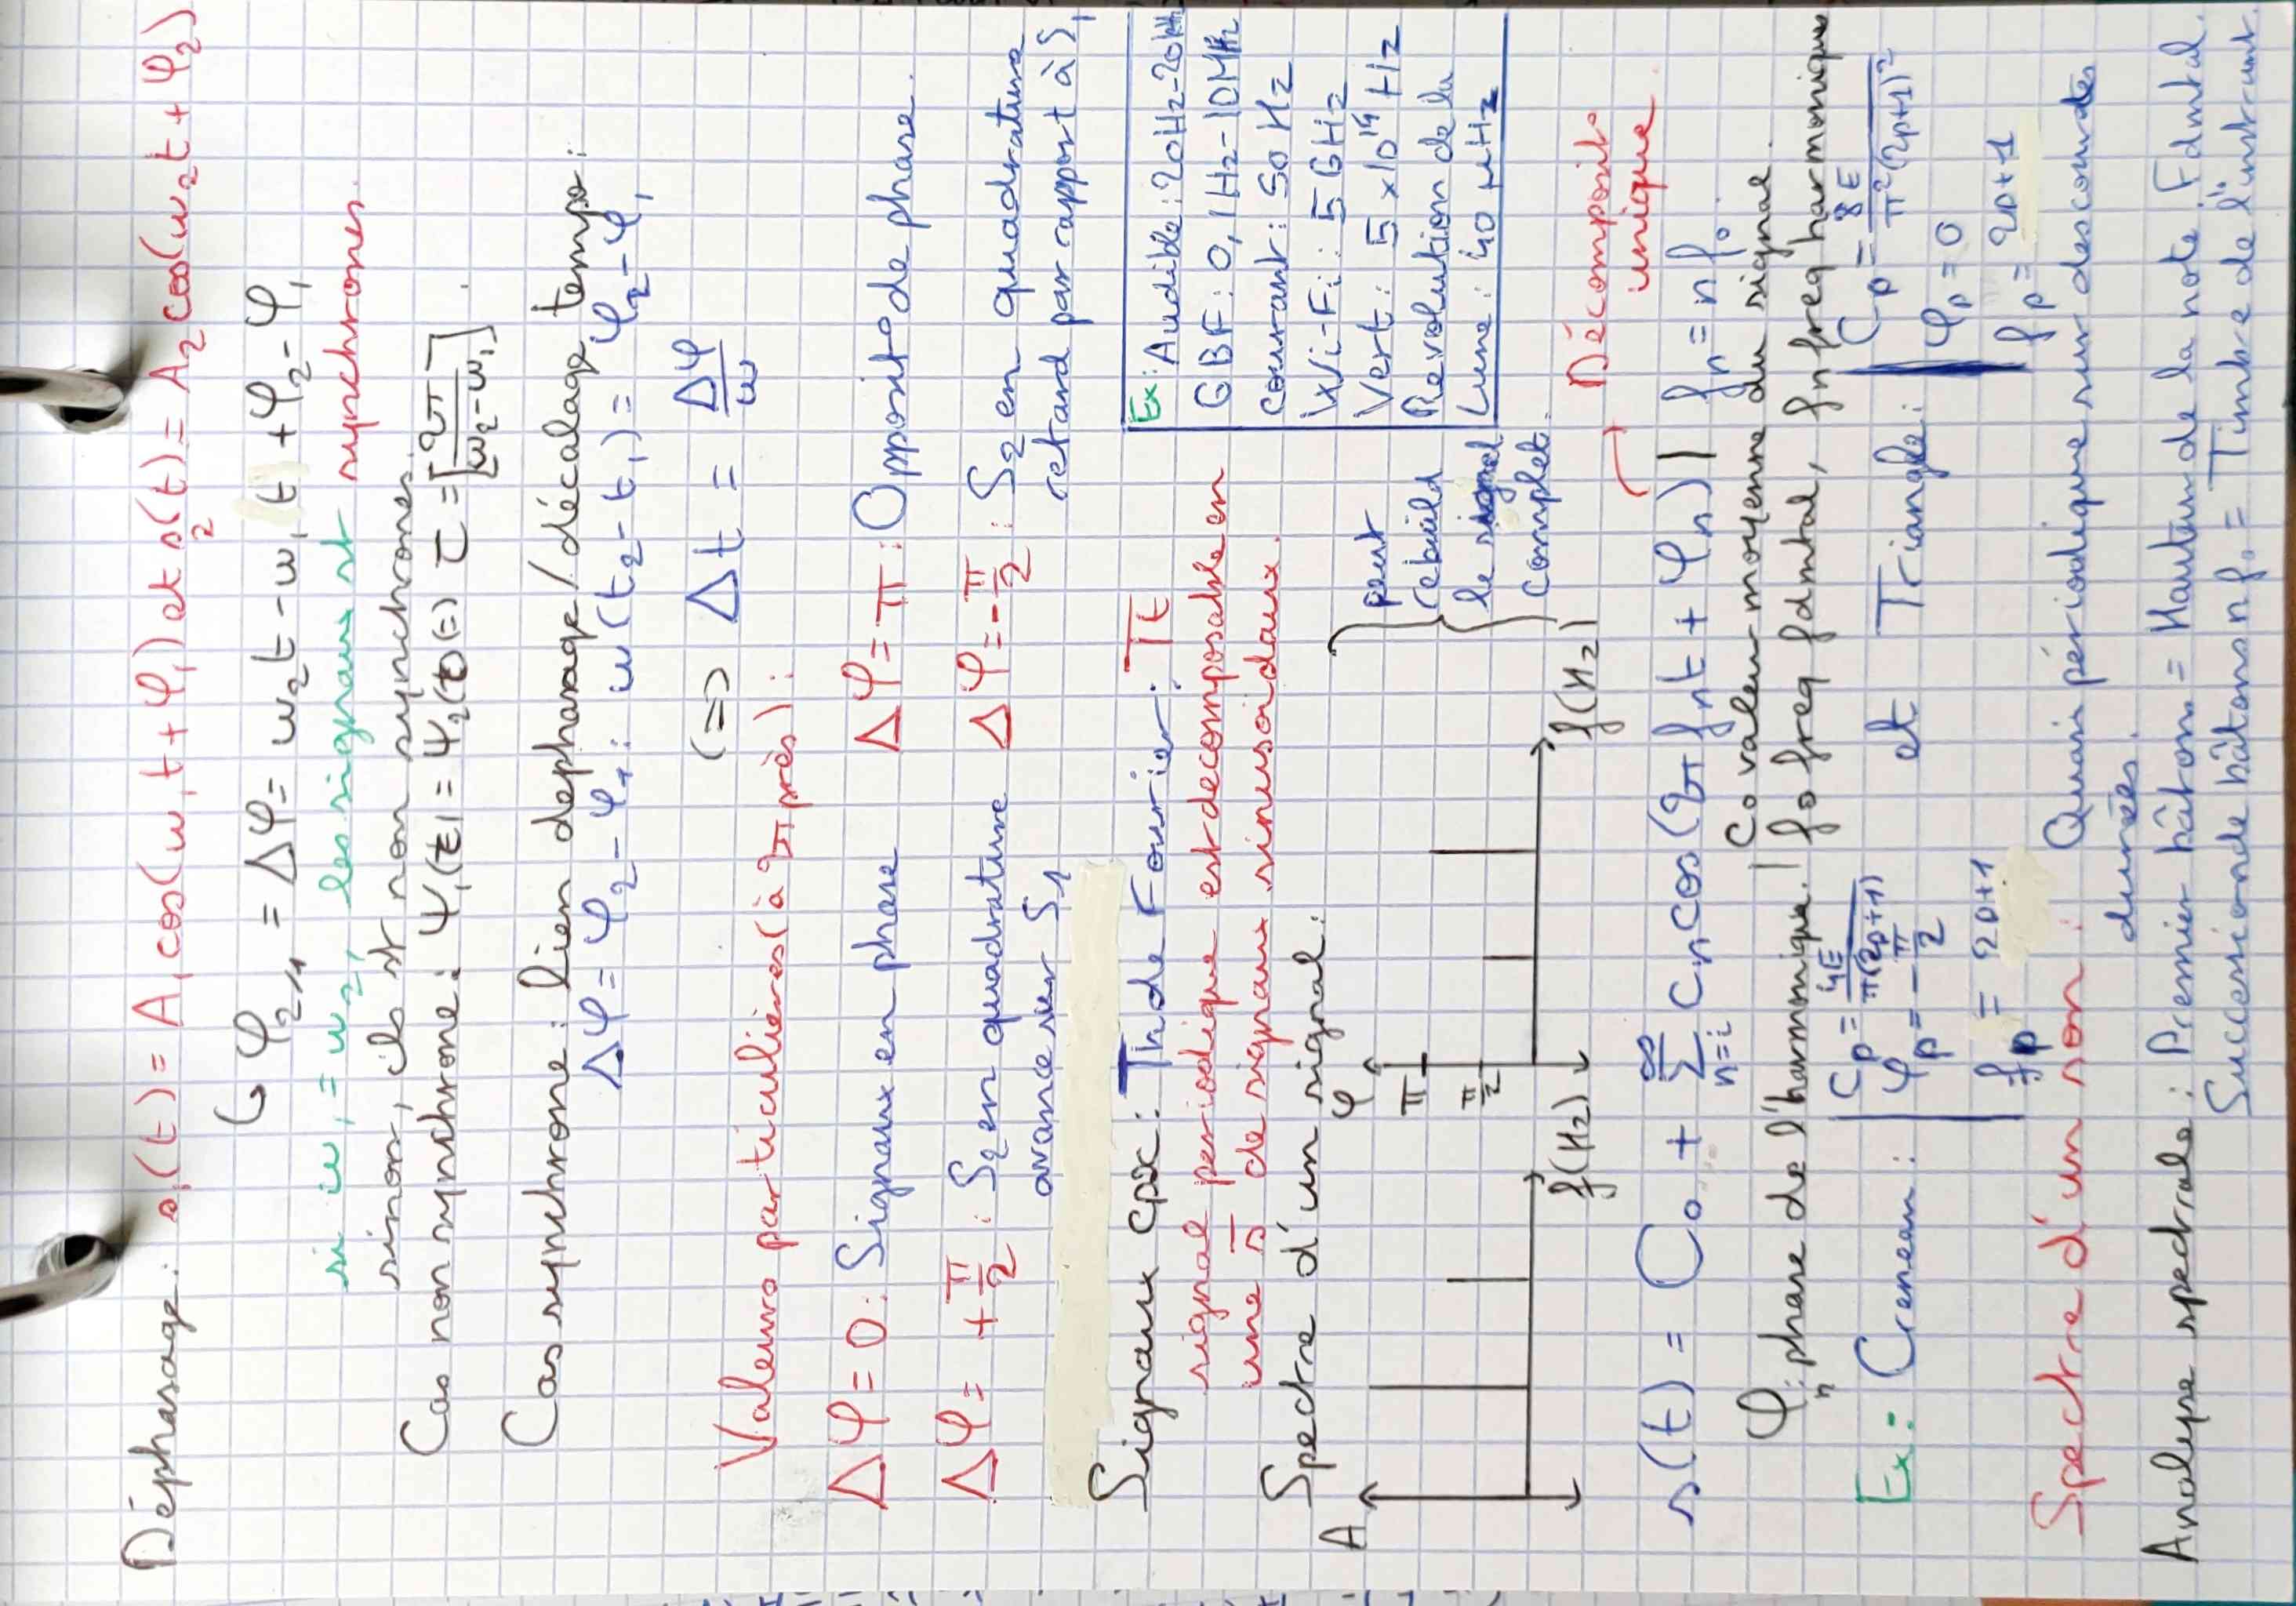 Déphasage : s₁(t) = A₁cos(ω₁t + φ₁) et s₂(t) = A₂cos(ω₂t + φ₂)
↳ φ₂/₁ = Δφ = ω₂t - ω₁t + φ₂ - φ₁
si ω₁ = ω₂, les signaux st synchrones.
sinon, ils st non synchrones.
Cas non synchrone : Ψ₁(t) = Ψ₂(t) (=) τ = [2π/(ω₂-ω₁)].
Cas synchrone : lien dephasage/décalage tempo :
Δφ = φ₂ - φ₁ : ω(t₂ - t₁) = φ₂ - φ₁
(=) Δt = Δφ/ω
Valeurs particulières (à 2π près) :
Δφ = 0 : Signaux en phase Δφ = π : Opposit° de phase.
Δφ = +π/2 : S₂ en quadrature avance sur S₁ Δφ = -π/2 : S₂ en quadrature retard par rapport à S₁
Signaux cpx : Th de Fourier : Tt
signal periodique est decomposable en
une Σ de signaux sinusoidaux.
Ex : Audible : 20Hz-20kHz
GBF : 0,1Hz-10MHz
courant : 50 Hz
Wi-Fi : 5 GHz
Vert : 5 x10¹⁴ Hz
Revolution de la
Lune : 40 µHz
Spectre d'un signal :
A f(Hz)
φ π π/2 f(Hz)
peut
rebuild
le signal
complet.
Décomposit°
unique.
s(t) = C₀ + Σ n=i ∞ Cₙcos(2πfₙt + φₙ) | fₙ = nf₀.
C₀ valeur moyenne du signal.
φₙ : phase de l'harmonique. | f₀ freq fdmtal, fₙ freq harmonique
Ex : Creneau : | Cp = 4E/π(2p+1) et Triangle : | Cp = 8E/π²(2p+1)²
φp = -π/2 φp = 0
fp = 2p+1 fp = 2p+1
Spectre d'un son : Quasi périodique sur des courtes
durées.
Analyse spectrale : Premier bâton = Hauteur de la note. Fdmtal.
Succession de bâtons nf₀ = Timbre de l'instrumt.